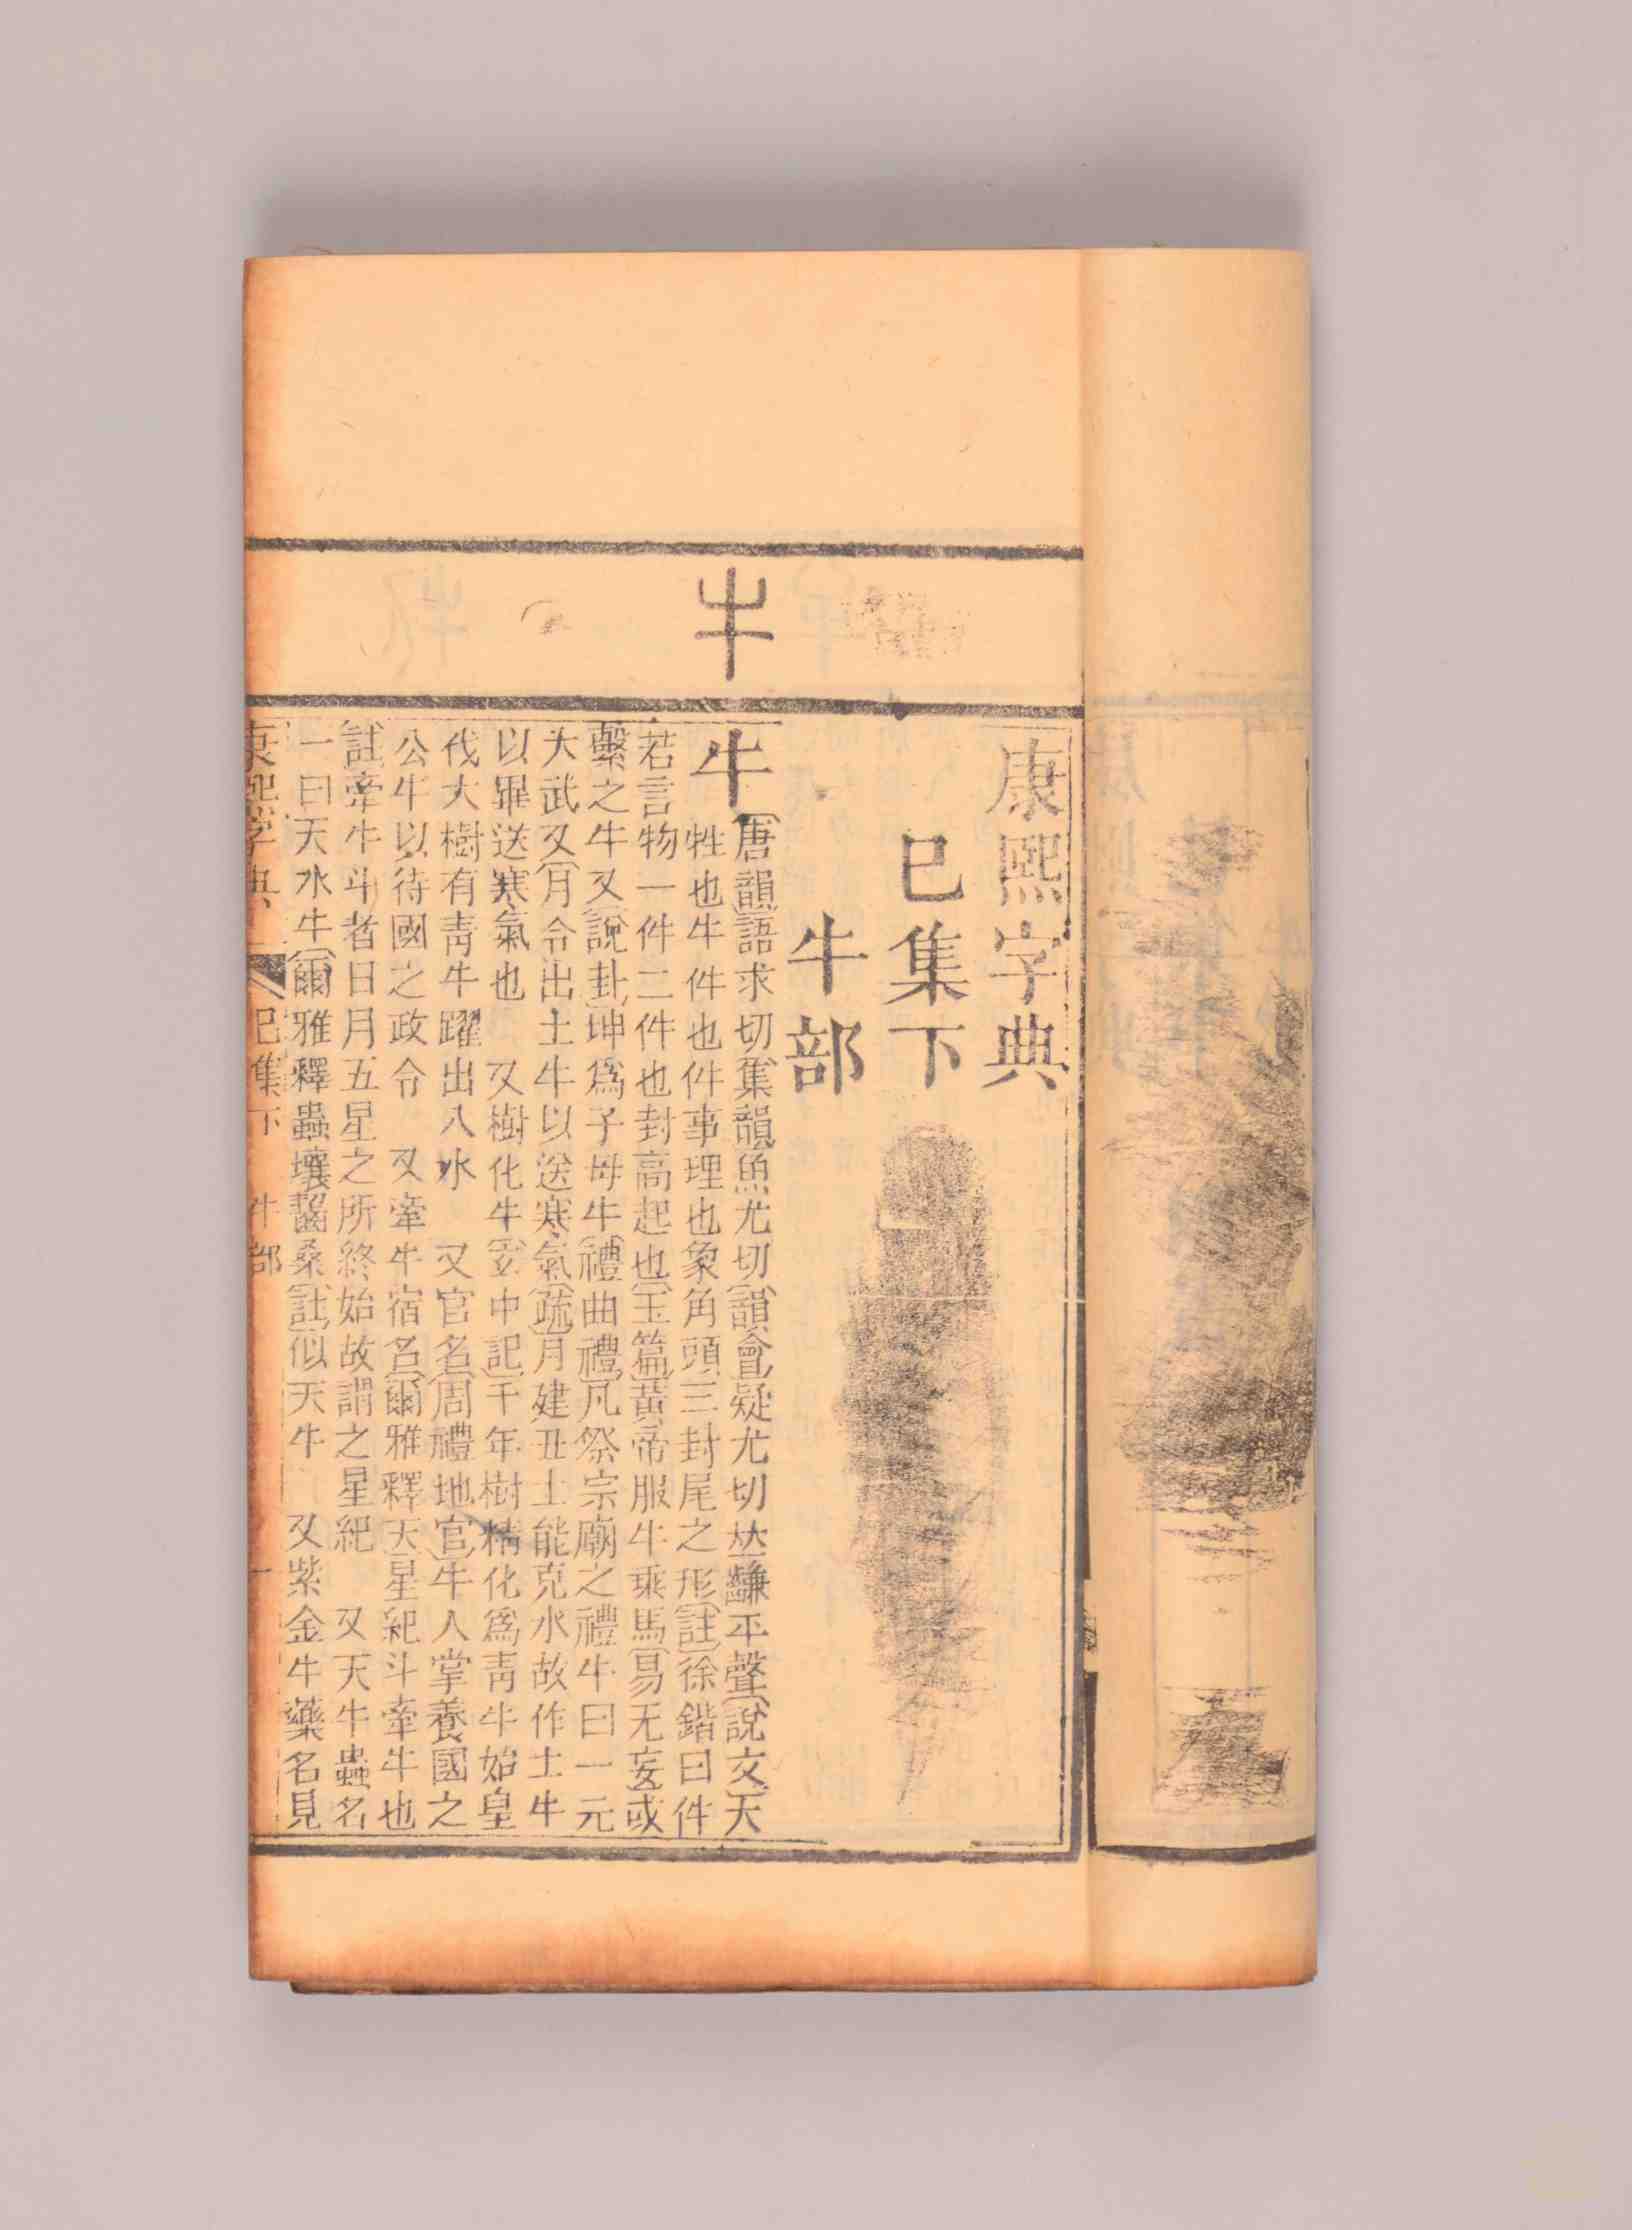 康熙字典
巳集下
牛部
牛
牛
〔唐韻〕語求切〔集韻〕魚尤切〔韻會〕疑尤切𠀤䶢平聲〔說文〕天
牲也牛件也件事理也象角頭三封尾之形〔註〕徐鍇曰件
若言物一件二件也封高起也〔玉篇〕黃帝服牛乘馬〔易无妄〕或
繫之牛又〔說卦〕坤爲子母牛〔禮曲禮〕凡祭宗廟之禮牛曰一元
大武又〔月令〕出土牛以送寒氣〔疏〕月建丑土能克水故作土牛
以畢送寒氣也 又樹化牛〔玄中記〕千年樹精化爲靑牛始皇
伐大樹有靑牛躍出入水 又官名〔周禮地官〕牛人掌養國之
公牛以待國之政令 又牽牛宿名〔爾雅釋天〕星紀斗牽牛也
〔註〕牽牛斗者日月五星之所終始故謂之星紀 又天牛蟲名
一曰天水牛〔爾雅釋蟲〕蠰齧桑〔註〕似天牛 又紫金牛藥名見
康熙字典 巳集下 牛部 一